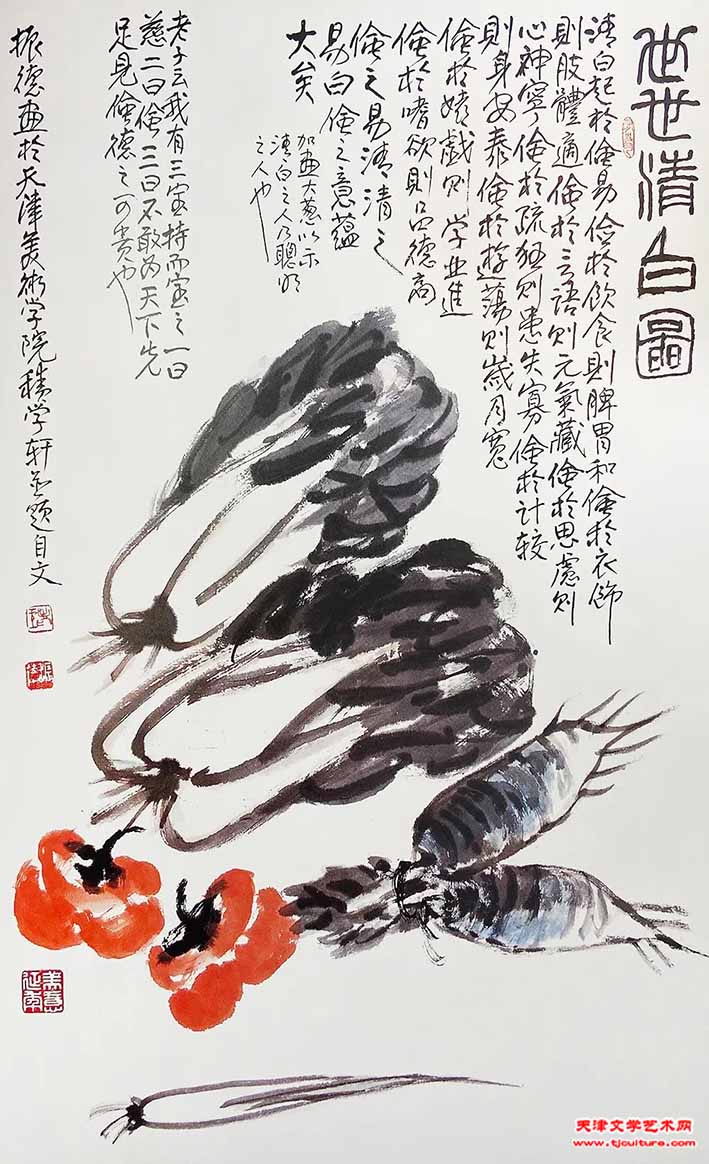 世世清白圖
清白起於儉易儉於飲食則脾胃和儉於衣飾
則肢體適儉於言語則元氣藏儉於思慮則
心神寧儉於疏狂則患失寡儉於計較
則身安泰儉於遊蕩則歲月寬
儉於嬉戲則学業進
儉於嗜欲則品德高
儉之易清清之
易白儉之意蘊
大矣
加畫大蔥以示
清白之人乃聰明
之人也
老子云我有三宝持而宝之一曰
慈二曰儉三曰不敢为天下先
足見儉德之可貴也
振德畫於天津美術学院積学軒並題自文
美意延年
天津文学艺术网
www.tjculture.com